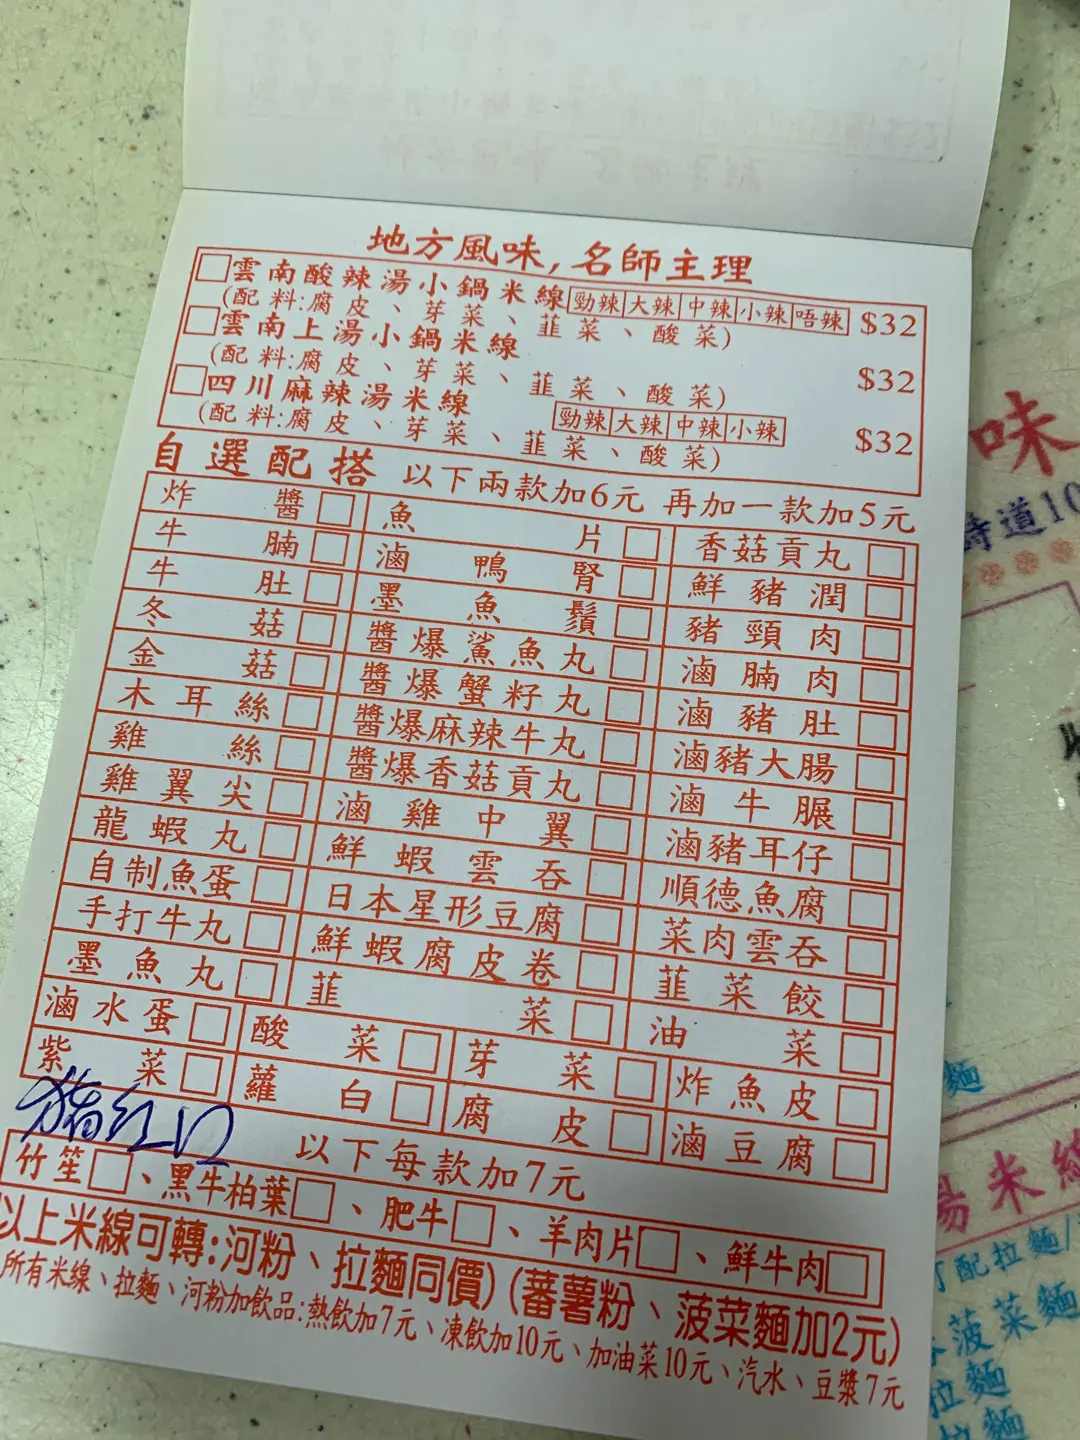 地方風味,名師主理
□雲南酸辣湯小鍋米線 勁辣 大辣 中辣 小辣 唔辣 $32
(配料:腐皮、芽菜、韮菜、酸菜)
□雲南上湯小鍋米線 $32
(配料:腐皮、芽菜、韮菜、酸菜)
□四川麻辣湯米線 勁辣 大辣 中辣 小辣 $32
(配料:腐皮、芽菜、韮菜、酸菜)
自選配搭 以下兩款加6元 再加一款加5元
炸醬□ 魚片□ 香菇貢丸□
牛腩□ 滷鴨腎□ 鮮豬潤□
牛肚□ 墨魚鬚□ 豬頸肉□
冬菇□ 醬爆鯊魚丸□ 滷腩肉□
金菇□ 醬爆蟹籽丸□ 滷豬肚□
木耳絲□ 醬爆麻辣牛丸□ 滷豬大腸□
雞絲□ 醬爆香菇貢丸□ 滷牛𦟌□
雞翼尖□ 滷雞中翼□ 滷豬耳仔□
龍蝦丸□ 鮮蝦雲吞□ 順德魚腐□
自制魚蛋□ 日本星形豆腐□ 菜肉雲吞□
手打牛丸□ 鮮蝦腐皮卷□ 韮菜餃□
墨魚丸□ 韮菜□ 油菜□
滷水蛋□ 酸菜□ 芽菜□ 炸魚皮□
紫菜□ 蘿白□ 腐皮□ 滷豆腐□
猪红口 以下每款加7元
竹笙□、黑牛柏葉□、肥牛□、羊肉片□、鮮牛肉□
以上米線可轉:河粉、拉麵同價)(蕃薯粉、菠菜麵加2元)
所有米線、拉麵、河粉加飲品:熱飲加7元、凍飲加10元、加油菜10元、汽水、豆漿7元
味
時道10
麵
湯米線
配拉麵/
菠菜麵
拉麵
拉麵